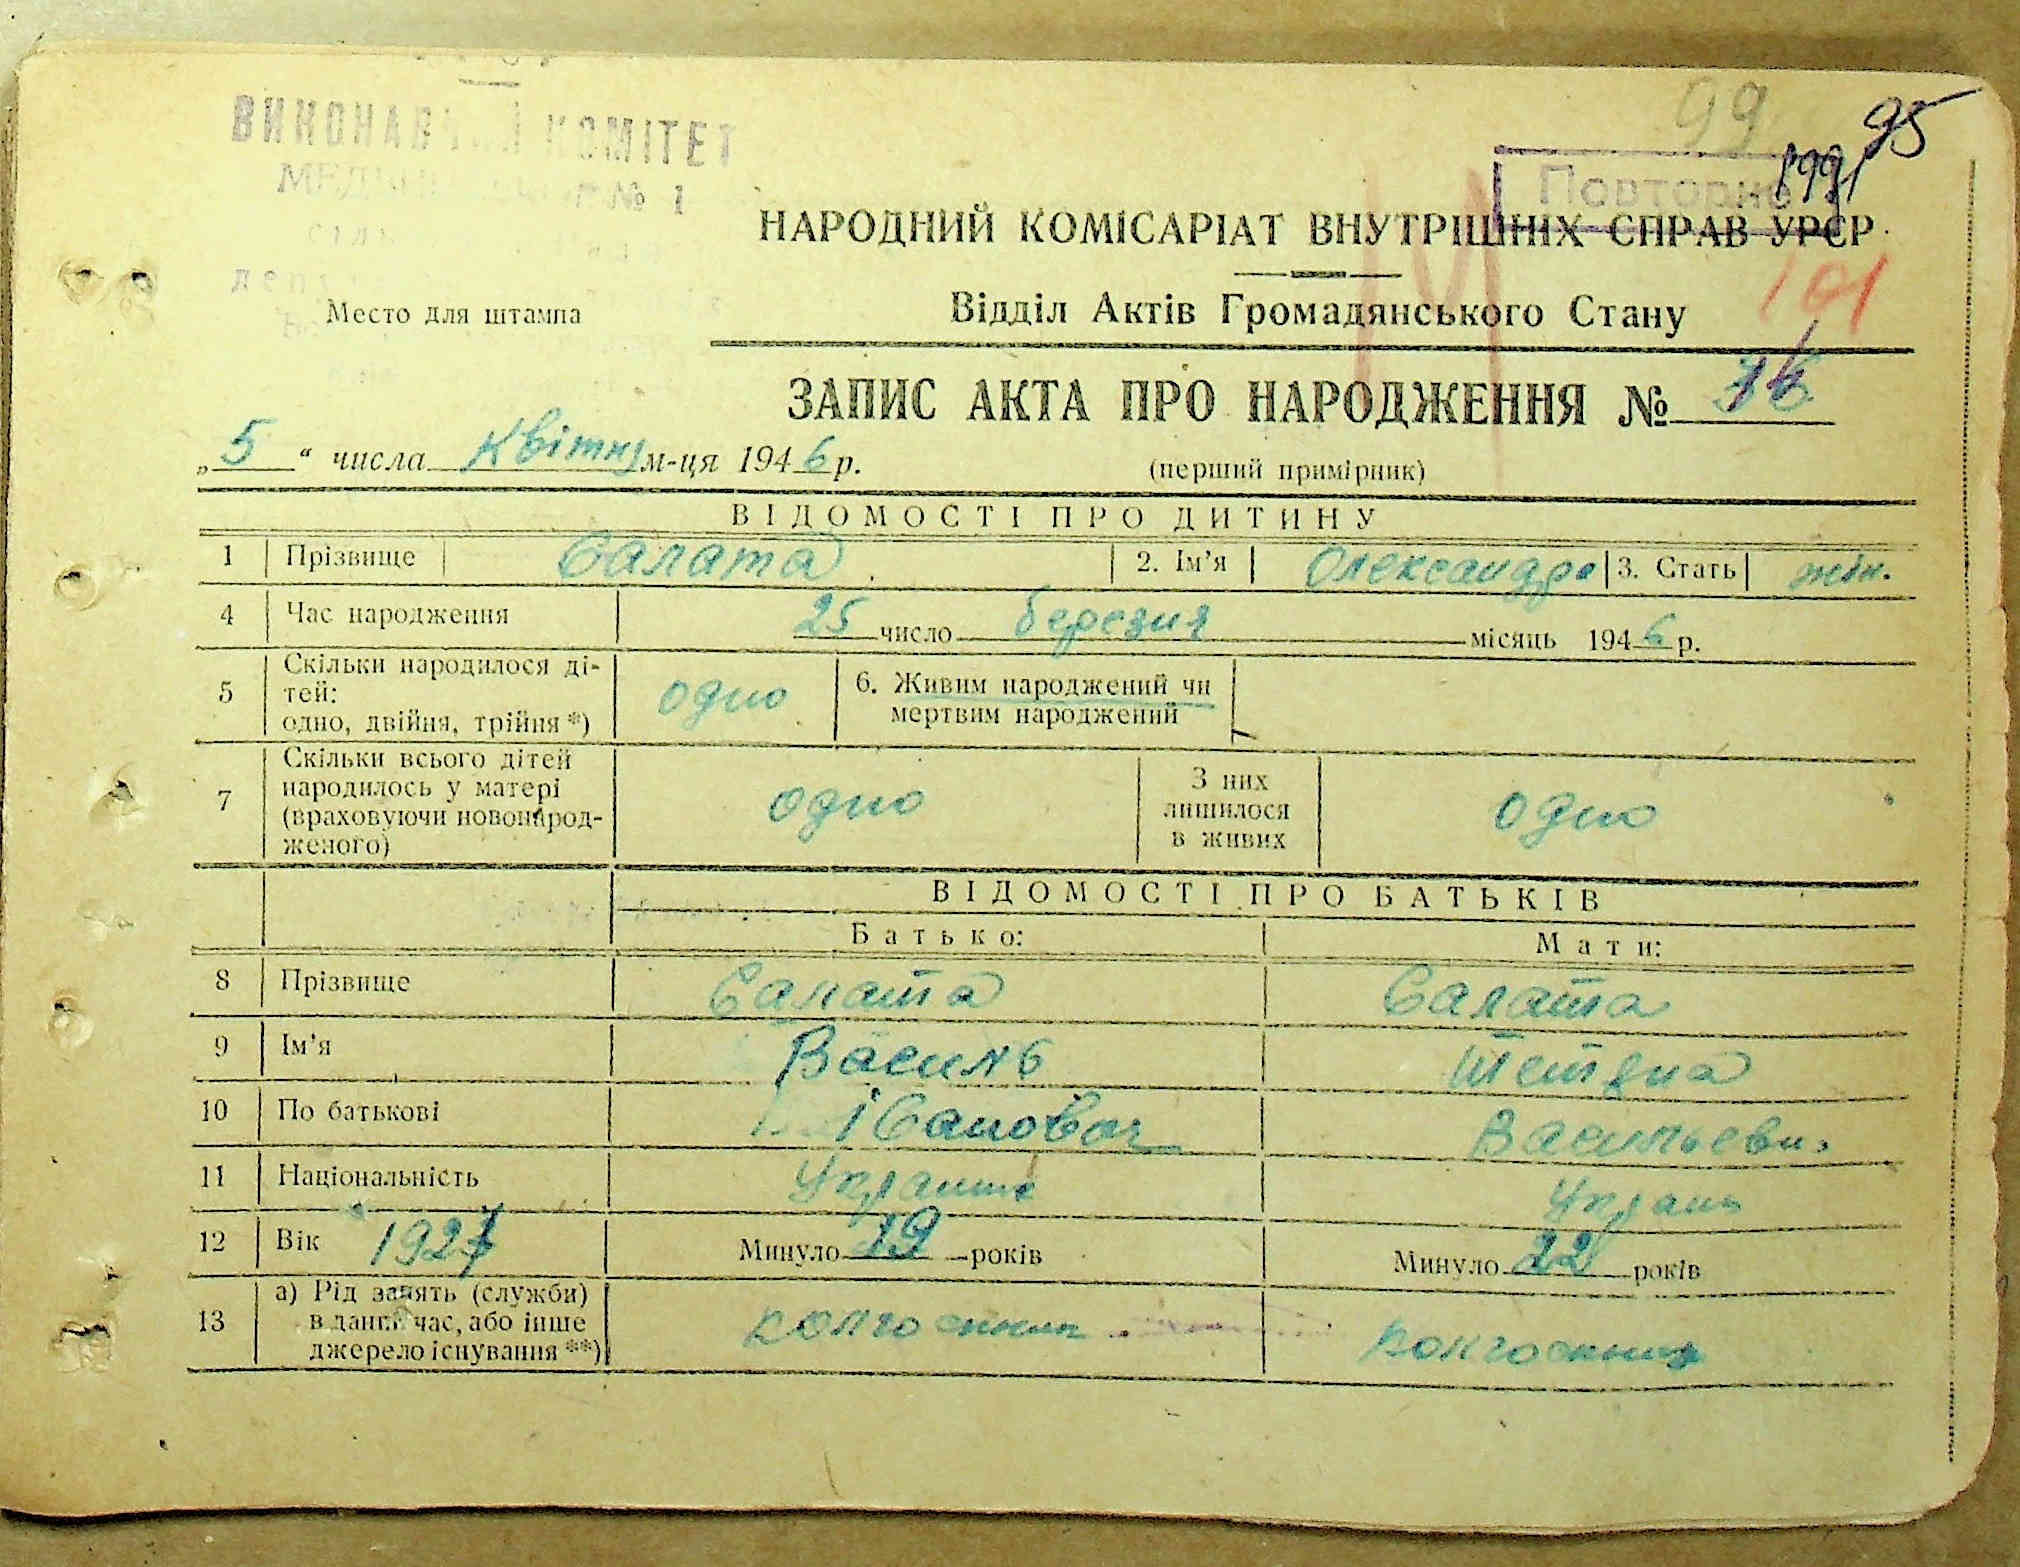 99 95
1991
ВИКОНАВЧИЙ КОМІТЕТ
№ 1
Повторне
НАРОДНИЙ КОМІСАРІАТ ВНУТРІШНІХ СПРАВ УРСР
101
Место для штампа
Відділ Актів Громадянського Стану
ЗАПИС АКТА ПРО НАРОДЖЕННЯ №
„5“ числа Квітня м-ця 1946 р. (перший примірник)
ВІДОМОСТІ ПРО ДИТИНУ
1 Прізвище Салата 2. Ім'я Олександра 3. Стать жін.
4 Час народження 25 число березня місяць 1946 р.
5 Скільки народилося ді-
тей:
одно, двійня, трійня *) одно
6. Живим народжений чи
мертвим народжений
7 Скільки всього дітей
народилось у матері
(враховуючи новонарод-
женого) одно
З них
лишилося
в живих одно
ВІДОМОСТІ ПРО БАТЬКІВ
Батько: Мати:
8 Прізвище Салата Салата
9 Ім'я Василь Тетяна
10 По батькові Іванович Васильевн.
11 Національність Україн
12 Вік 1927 Минуло 19 років Минуло 22 років
13 а) Рід занять (служби)
в даний час, або інше
джерело існування **) колгоспник колгоспниця